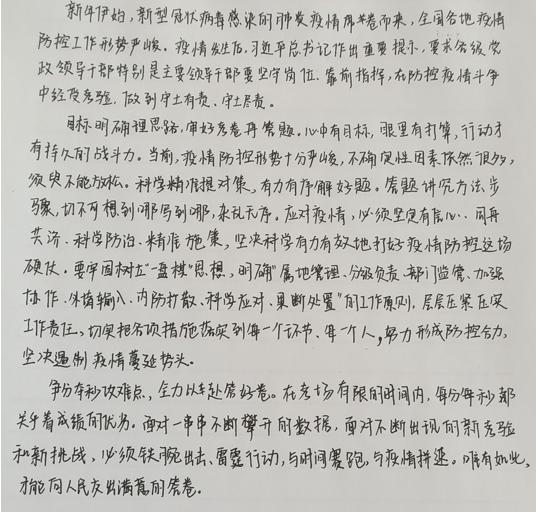 新年伊始，新型冠状病毒感染的肺炎疫情席卷而来，全国各地疫情
防控工作形势严峻。疫情发生后，习近平总书记作出重要指示，要求各级党
政领导干部特别是主要领导干部要坚守岗位、靠前指挥，在防控疫情斗争
中经受考验，做到守土有责、守土尽责。
目标明确理思路，审好考卷再答题。心中有目标，眼里有打算，行动才
有持久的战斗力。当前，疫情防控形势十分严峻，不确定性因素依然很多，
须臾不能放松。科学精准提对策，有力有序解好题。答题讲究方法步
骤，切不可想到哪写到哪，杂乱无序。应对疫情，必须坚定有信心、同舟
共济、科学防治、精准施策，坚决科学有力有效地打好疫情防控这场
硬仗。要牢固树立"一盘棋"思想，明确"属地管理、分级负责、部门监管、加强
协作、外堵输入、内防扩散、科学应对、果断处置"的工作原则，层层压紧压实
工作责任，切实把各项措施落实到每一个环节、每一个人，努力形成防控合力，
坚决遏制疫情蔓延势头。
争分夺秒攻难点，全力以赴答好卷。在考场有限的时间内，每分每秒都
关乎着成绩的优劣。面对一串串不断攀升的数据，面对不断出现的新考验
和新挑战，必须铁腕出击、雷霆行动，与时间赛跑，与疫情拼速。唯有如此，
才能向人民交出满意的答卷。